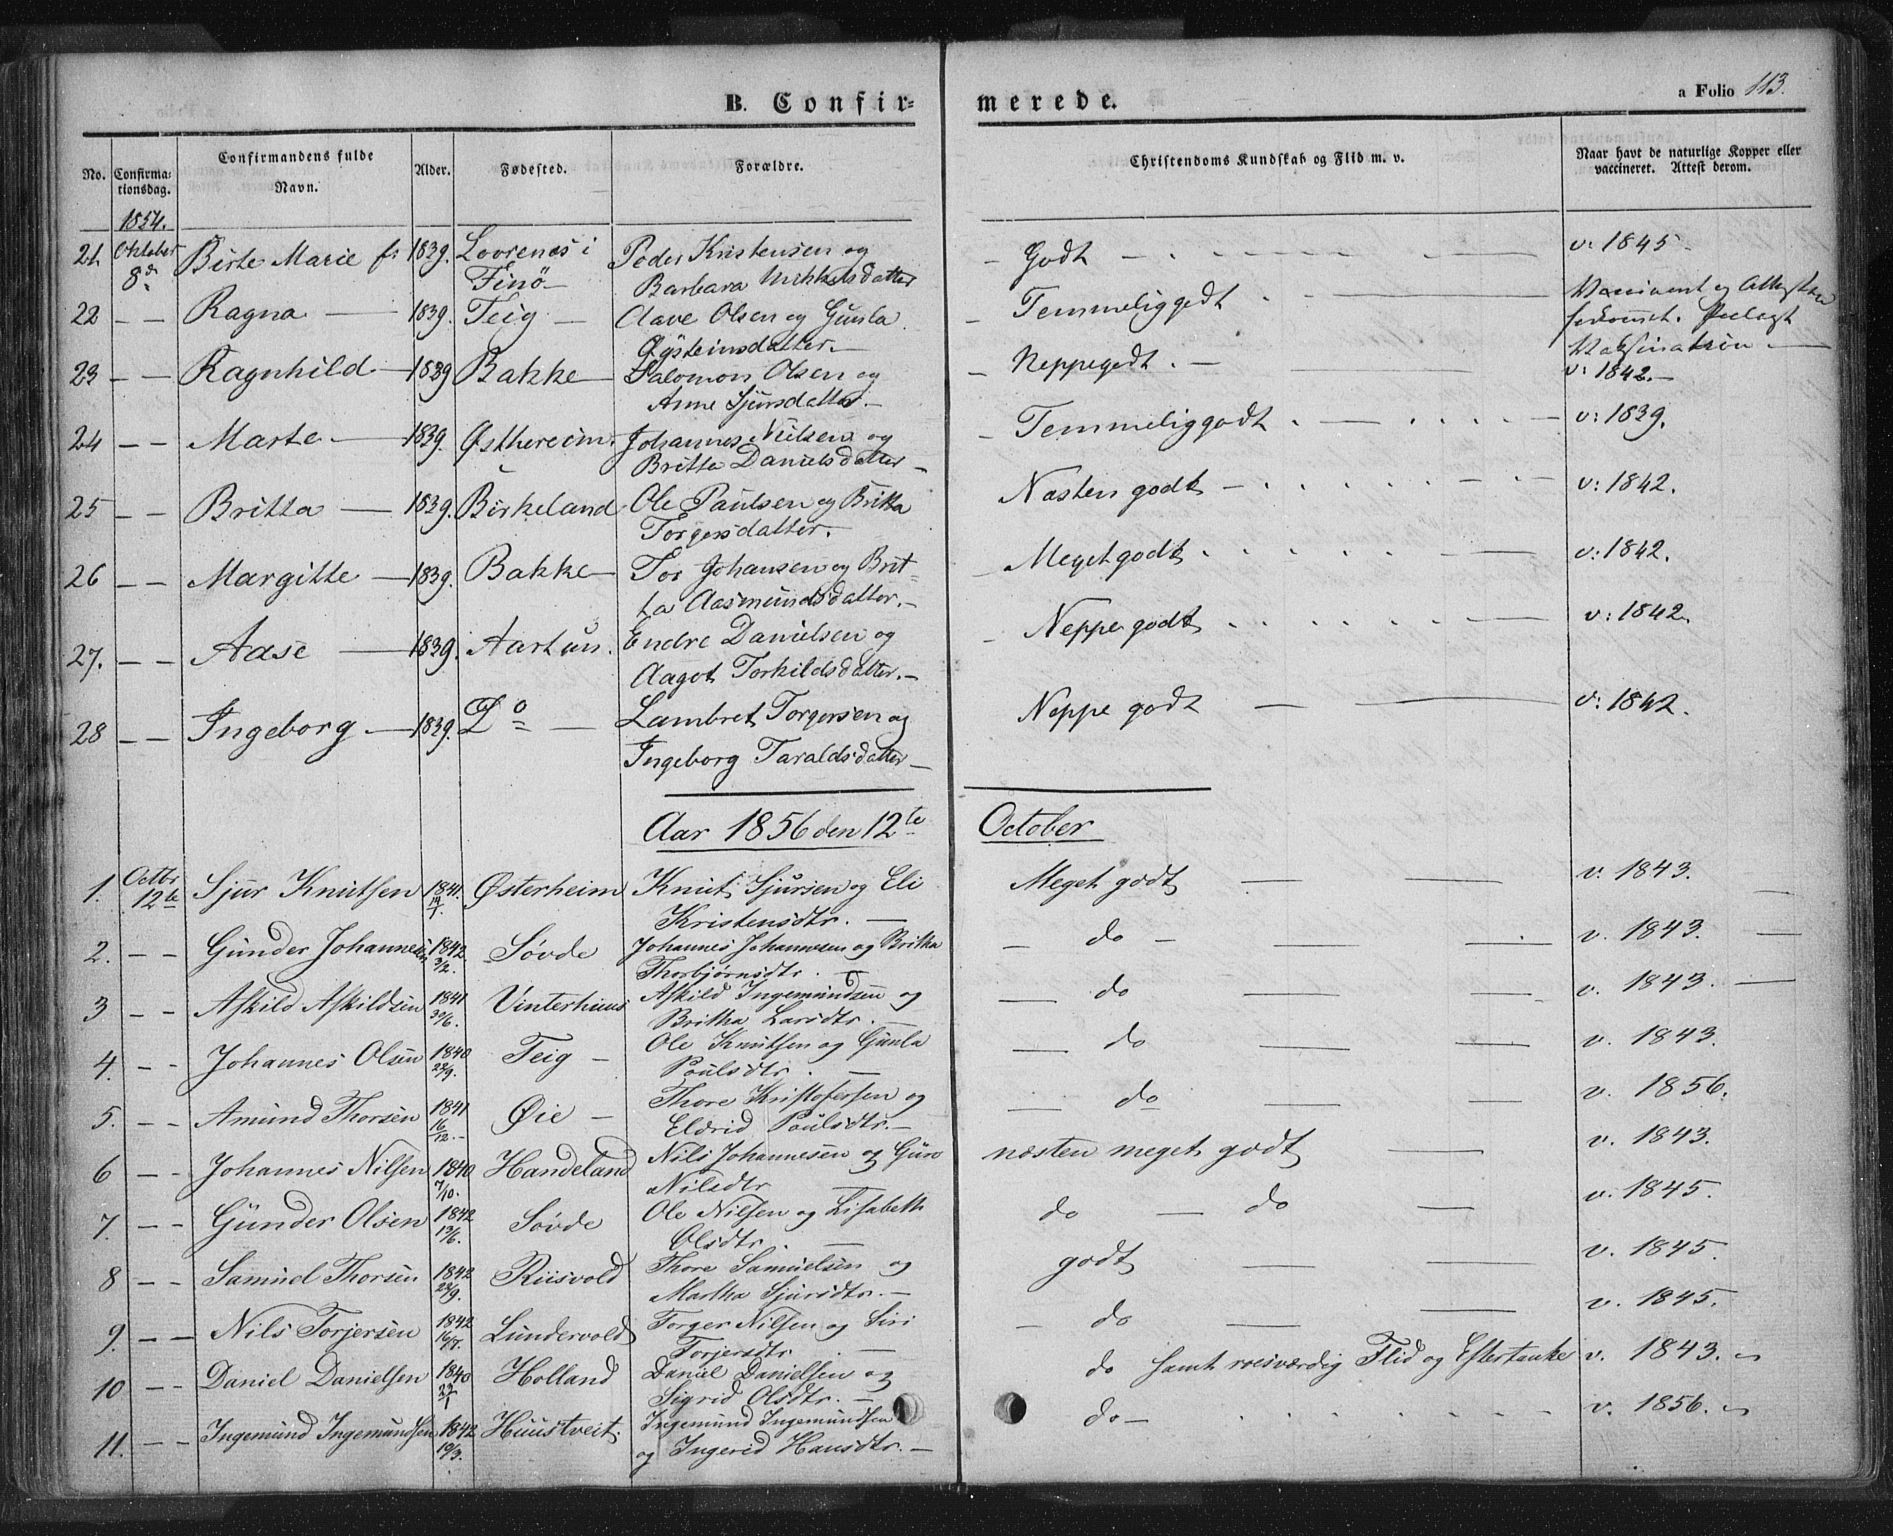 B. Confir-
merede.
a Folio 113.
No.
Confirma-
tionsdag.
Confirmandens fulde
Navn.
Alder.
Fødested.
Forældre.
Christendoms Kundskab og Flid m. v.
Naar havt de naturlige Kopper eller
vaccineret. Attest derom.
1854.
21. Oktober Birte Marie 1839. i Peder Kristensen og - Godt - v: 1845
8de Finö - Barbara Mikkelsdatter
22 - - Ragna - 1839. Teig - Aave Olsen og Gunla - Temmeliggodt - Vaccineret og
Øysteinsdatter. -
23 - - Ragnhild - 1839 Bakke - Salomon Olsen og - Neppegodt. - v: 1842. -
Anne Sjursdatter. -
24 - - Marte - 1839. Østhereim. Johannes Nielsen og - Temmeliggodt - v: 1839.
Britta Danielsdatter -
25 - - Britta - 1839. Birkeland Ole Paulsen og Britta - Næsten godt - v: 1842.
Torgersdatter.
26 - - Margitte - 1839. Bakke - Tor Johansen og Brit- - Megetgodt - v: 1842.
ta Aasmundsdatter. -
27. - - Aase - 1839. Aartun. Endre Danielsen og - Neppegodt - v: 1842.
Aagot Torkildsdatter. -
28 - - Ingeborg - 1839. Do - Lambret Torgersen og Neppe godt - v: 1842.
Ingeborg Taraldsdatter -
Aar 1856 den 12te October
1. Octbr Sjur Knutsen 1841. Østerheim Knut Sjursen og Eli Meget godt - v. 1843.
12te 19/1 Kristensdtr. -
2. - - Gunder Johannesen 1842 Søvde Johannes Johannesen og Britha - do - v. 1843. -
3/2. Thorbjørnsdtr. -
3 - - Askild Askildsen 1841 Vinterhuus Askild Ingemundsen og - do - v. 1843. -
30/6. Britha Larsdtr. -
4. - - Johannes Olsen 1840 Teig - Ole Knutsen og Gunla - do - v. 1843.
29/9. Poulsdtr. -
5. - - Amund Thorsen 1841 Øie - Thore Kristofersen og - do - v. 1856.
16/12. - Eldrid Poulsdtr. -
6 - - Johannes Nilsen 1840 Handeland Nils Johannesen og Guro næsten meget godt - v. 1843.
7/10. Nilsdtr -
7. - - Gunder Olsen 1842 Søvde Ole Nilsen og Lisabeth do - do - v. 1845.
13/6. Olsdtr. -
8 - - Samuel Thorsen 1842 Riisvold Thore Samuelsen og godt - v. 1845.
22/9. Martha Sjursdtr. -
9. - - Nils Torjersen 1842 Lundervold Torger Nilsen og Siri - do - v. 1845.
Torjersdtr. -
10 - - Daniel Danielsen 1840 Holland Daniel Danielsen og do samt roesværdig Flid og Eftertanke v. 1843.
Sigrid Olsdtr. -
11. - - Ingemund Ingemundsen 1842 Huustveit. Ingemund Ingemundsen do - v. 1856.
19/3. og Ingerid Hansdtr. -